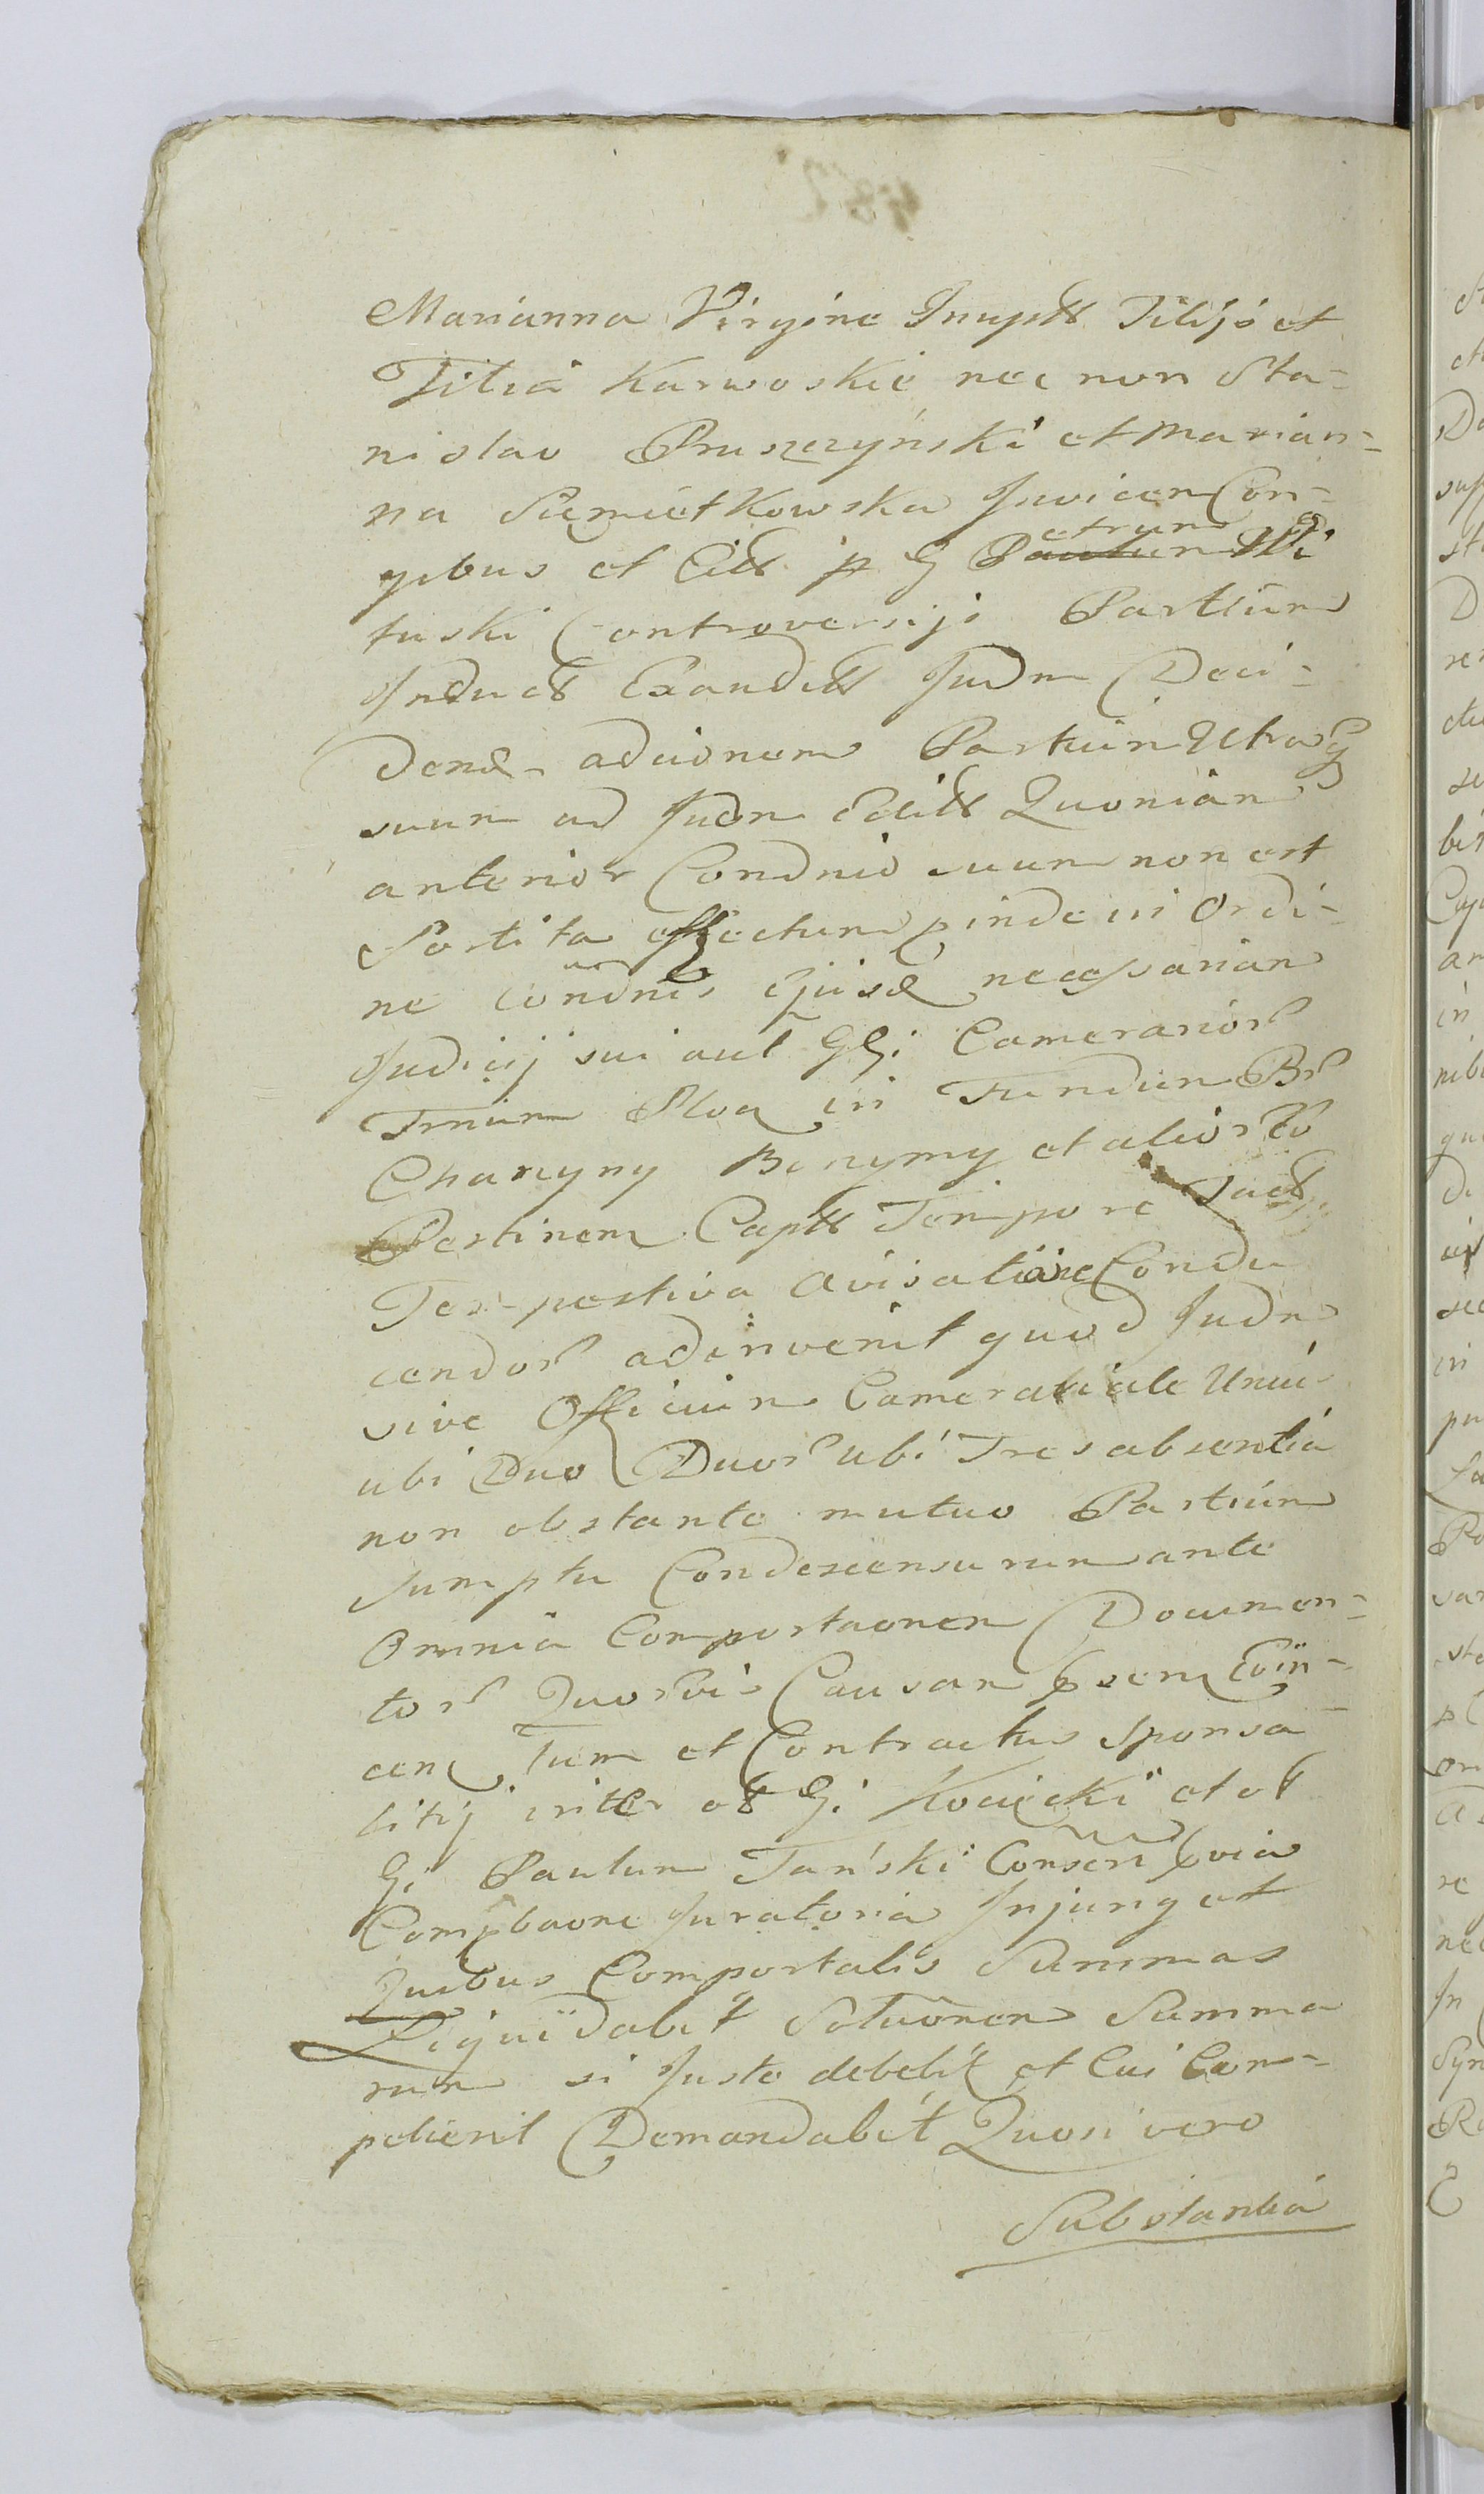 Marianna Virgine Inuptt Filijs et
Filia Karwoskie nec non Sta-
nislao Pruszczyński et Marian-
na Sumietkowska Invicem Con-
gibus et Citt p G Petrum
tuski Controversijs Partium
Induct Exauditt Judm Deci-
dend adcionem Partium Utrasq
suum ad Judm Editt Quoniam
anterior Condnio suum non est
Sortita effectum pinde in Ordi-
ne condnis Ejusd necessariam
Judicij sui aut GGi Camerarior
Trnium Ploa in Fundum Br
Charzyny Binzymy et alior
Pertinem Captt Tempore
Tempestiva Avisatione Condu
cendor adinvenit quod Judm
sive Officium Camerariale Unius
ubi Duo Duor ubi Tres absentia
non obstante mutuo Partium
Sumptu Condescensurum ante
Omnia Comportaonem Documen-
tor Quorvis Causam psem
cen Tum et Contractus Sponsa
litij inter ol Gi Kocięcki et ol
Gi Paulum Tański Consen pvia
Compbaone Juratoria Injunget
Quibus Comportatis Summas
Liquidabit Solutionem Summa
rum si Juste debebit et Cui Com-
petierit Demandabit Quoni vero
Substantia